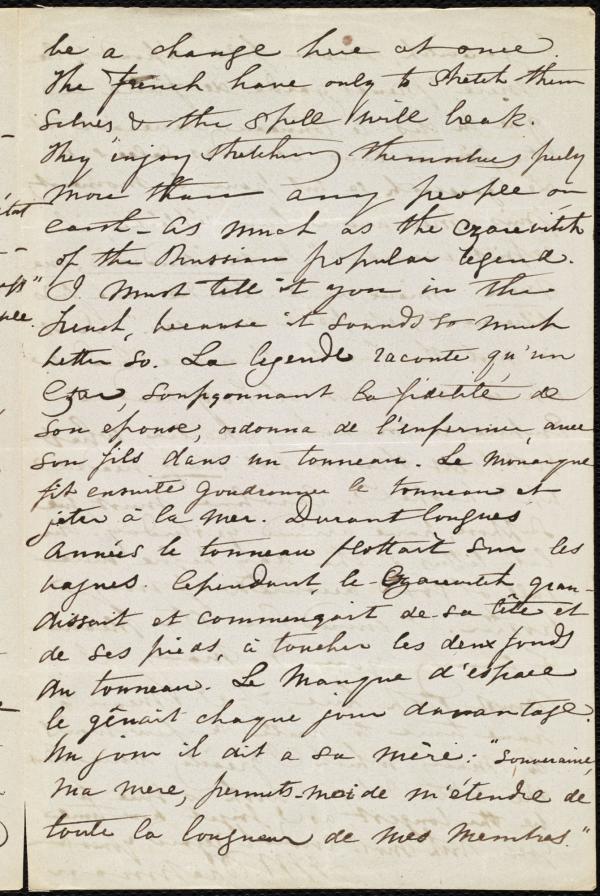 be a change here at once.
The French have only to stretch them
selves & the spell will break.
They enjoy stretching themselves
more than any people on
earth - as much as the czarevitch
of the Russian popular legend.
I must tell it you in the
French, because it sounds so much
better so. La légende raconte qu'un
Czar, soupçonnant la fidélité de
son épouse, ordonna de l'enfermer avec
son fils dans un tonneau. Le monarque
fit ensuite goudronner le tonneau et
jeter à la mer. Durant longues
années le tonneau flottait sur les
vagues. Cependant, le Czarevitch gran-
dissait et commençait de sa tête et
de ses pieds, à toucher les deux fonds
du tonneau. Le manque d'espace
le gênait chaque jour davantage.
Un jour il dit a sa mère: "Souveraine,
ma mere, permets-moi de m'étendre de
toute la longueur de mes membres."